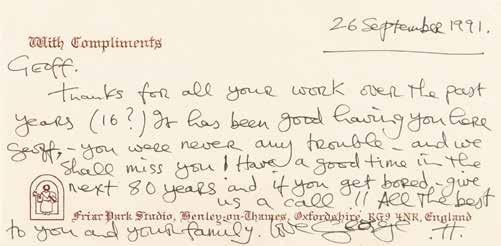 26 September 1991.
With Compliments
Geoff.
Thanks for all your work over the past
years (16?) It has been good having you here
Geoff, - you were never any trouble - and we
shall miss you! Have a good time in the
next 80 years and if you get bored - give
us a call!! All the best
Friar Park Studio, Henley-on-Thames, Oxfordshire RG9 4NR, England
to you and your family. Love George .H.